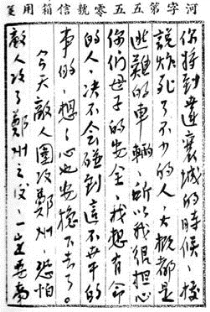 河字第五五零號信箱用箋
你將到達襄城的時候，
說炸死了不少的人，大概都是
逃難的車輛，所以我很担心
你們母子的安全，我想有命
的人，决不会碰到這不幸的
事的，想心也安穩下去了。
今天敵人圍攻鄭州，恐怕
敵人攻了鄭州之後，一定